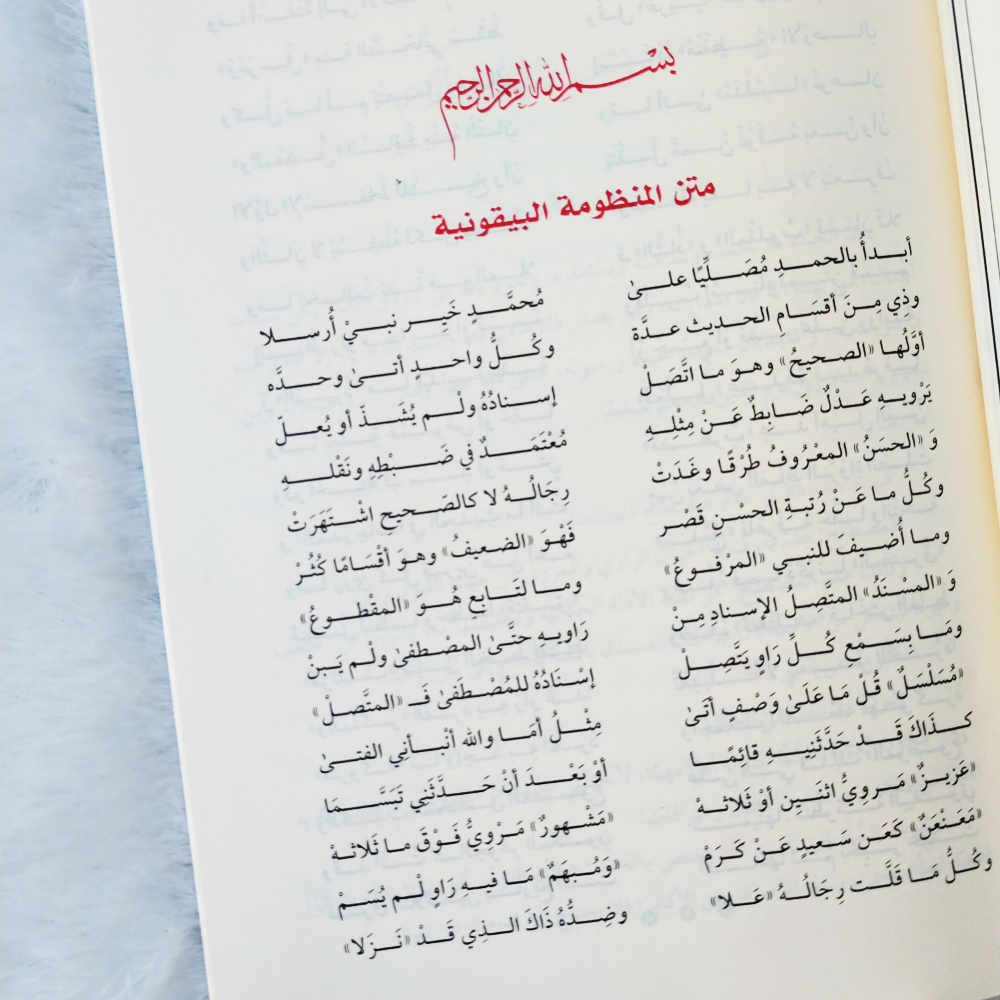 بسم الله الرحمن الرحيم
متن المنظومة البيقونية
أبـدأُ بالحمدِ مُصَلِّيًا علىٰ مُحمَّدٍ خَيِر نبيْ أُرسلا
وذِي مِنَ أقسَامِ الحديث عدَّة وكُلُّ واحدٍ أتىٰ وحدَّه
أوَّلُها «الصحيحُ» وهوَ ما اتَّصَلْ إسنادُهُ ولْم يُشَذّ أو يُعلّ
يَرْويهِ عَدْلٌ ضَابِطٌ عَنْ مِثْلِهِ مُعْتَمَدٌ في ضَبْطِهِ ونَقْلهِ
وَ «الحسَنُ» المعْرُوفُ طُرْقًا وغَدَتْ رِجَالُهُ لا كالصَحيحِ اشْتَهَرَتْ
وكُلُّ ما عَنْ رُتبةِ الحسْنِ قَصُر فَهْوَ «الضعيفُ» وهوَ أقْسَامًا كُثُرْ
وما أُضيفَ للنبي «المرْفوعُ» وما لتَابعٍ هُوَ «المقْطوعُ»
وَ «المسْنَدُ» المتَّصِلُ الإسنادِ مِنْ رَاويهِ حتَّىٰ المصْطفىٰ ولْم يَبنْ
ومَا بِسَمْعِ كُلِّ رَاوٍ يَتَّصِلْ إسْنَادُهُ للمُصْطَفَىٰ فَـ «المتَّصلْ»
«مُسَلْسَلٌ» قُلْ مَا عَلَىٰ وَصْفٍ أتَىٰ مِثْلُ أمَا والله أنْبأني الفتىٰ
كذَاكَ قَدْ حَدَّثَنِيهِ قائِمًا أوْ بَعْدَ أنْ حَدَّثَني تَبَسَّمَا
«عَزيزٌ» مَرويُّ اثنَين أوْ ثَلاثهْ «مَشْهورٌ» مَرْوِيُّ فَوْقَ ما ثَلاثهْ
«مَعَنْعَنٌ» كَعَن سَعيدٍ عَنْ كَرَمْ «وَمُبهَمٌ» مَا فيهِ رَاوٍ لْم يُسَمْ
وكُلُّ مَا قَلَّت رِجَالُهُ «عَلا» وضِدُّهُ ذَاكَ الذِي قَدْ «نَزَلا»